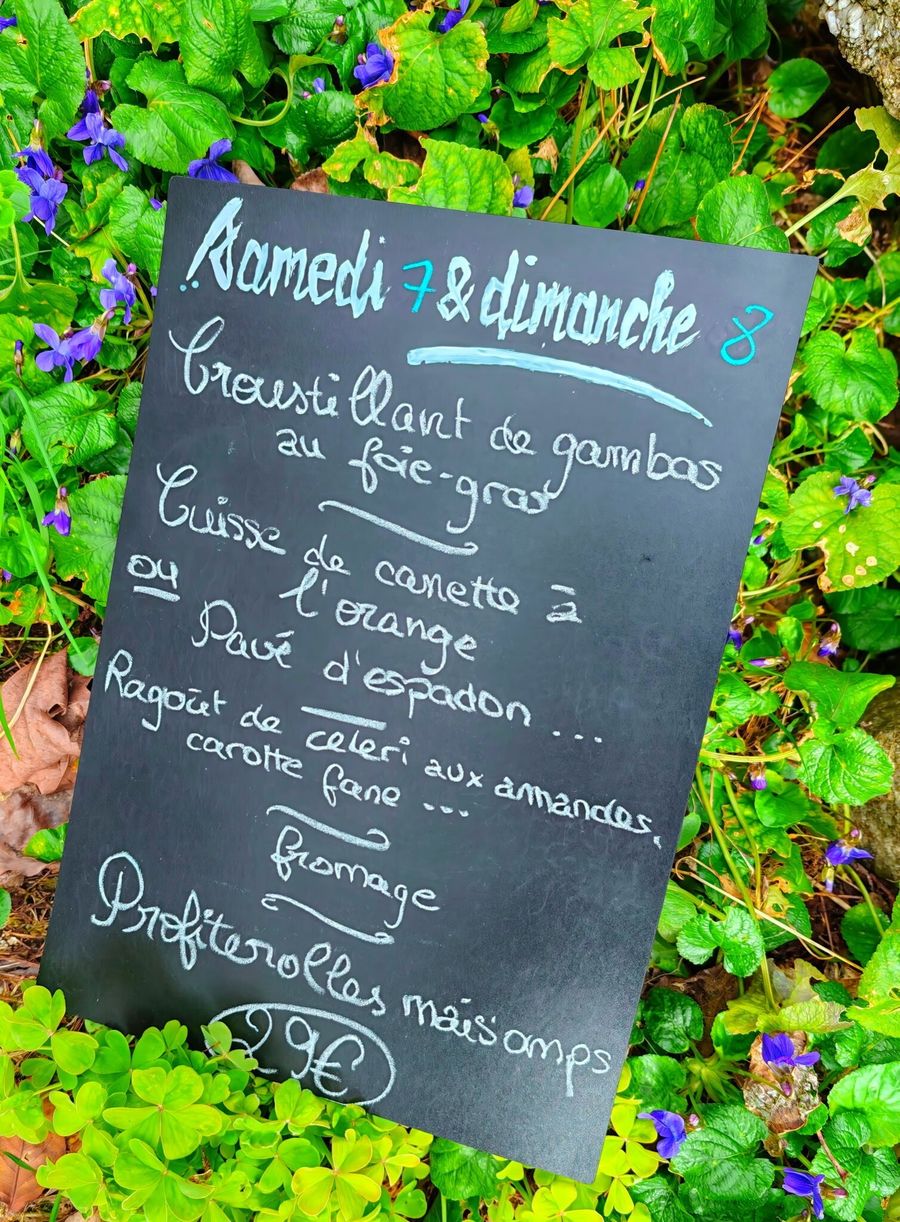 Samedi 7 & dimanche 8
Croustillant de gambas
au foie-gras
Cuisse de canette à
l'orange
ou
Pavé d'espadon ...
Ragoût de celeri aux amandes,
carotte fane ...
fromage
Profiterolles mais'omps
29€